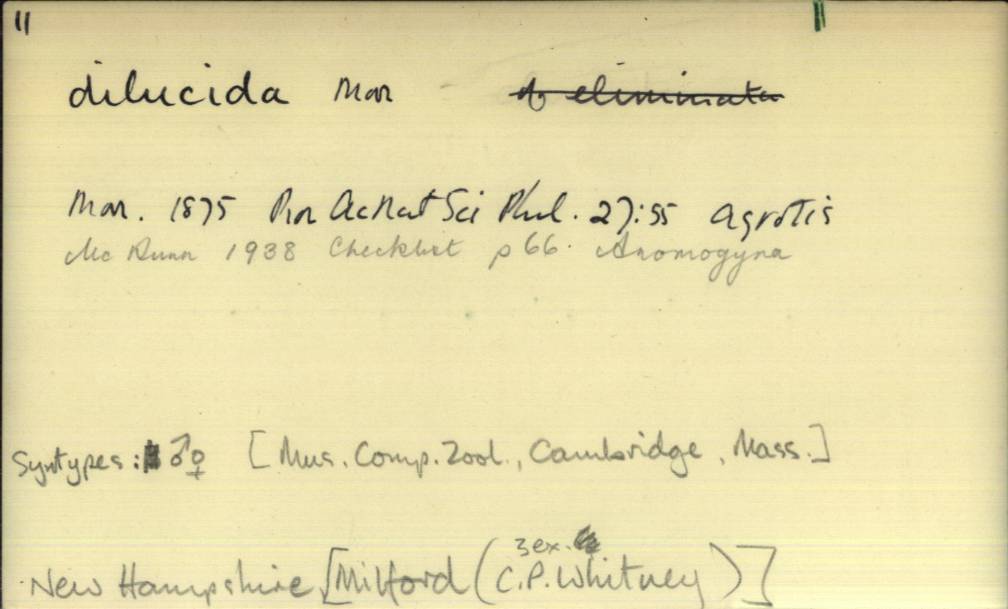 11
dilucida Mor
Mor. 1875 Proc Ac Nat Sci Phil. 27:55 Agrotis
Mc Dunn 1938 Checklist p 66. Anomogyna
Syntypes: ♂♀ [Mus. Comp. Zool., Cambridge, Mass.]
3 ex.
New Hampshire [Milford (C.P. Whitney)]